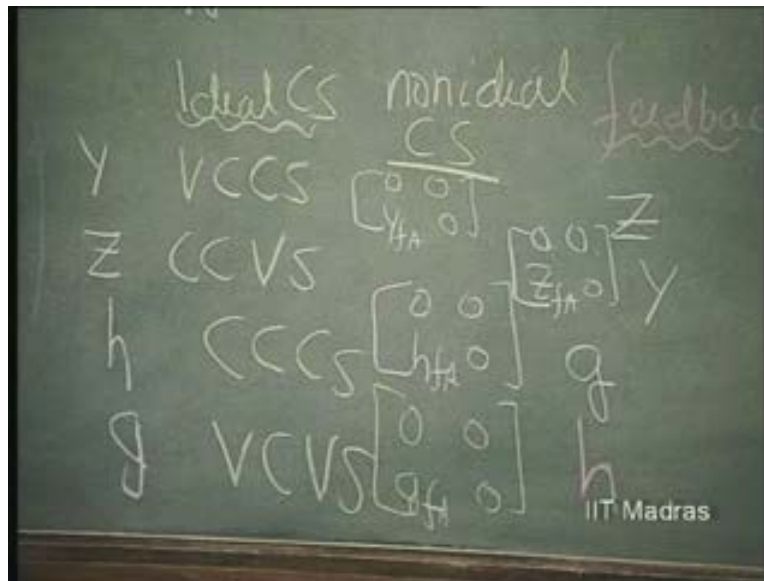 Ideal CS nonideal CS feedbac
Y VCCS [0 0 yfA 0] Z
Z CCVS [0 0 ZfA 0] Y
h CCCS [0 0 hfA 0] g
g VCVS [0 0 gfA 0] h
IIT Madras